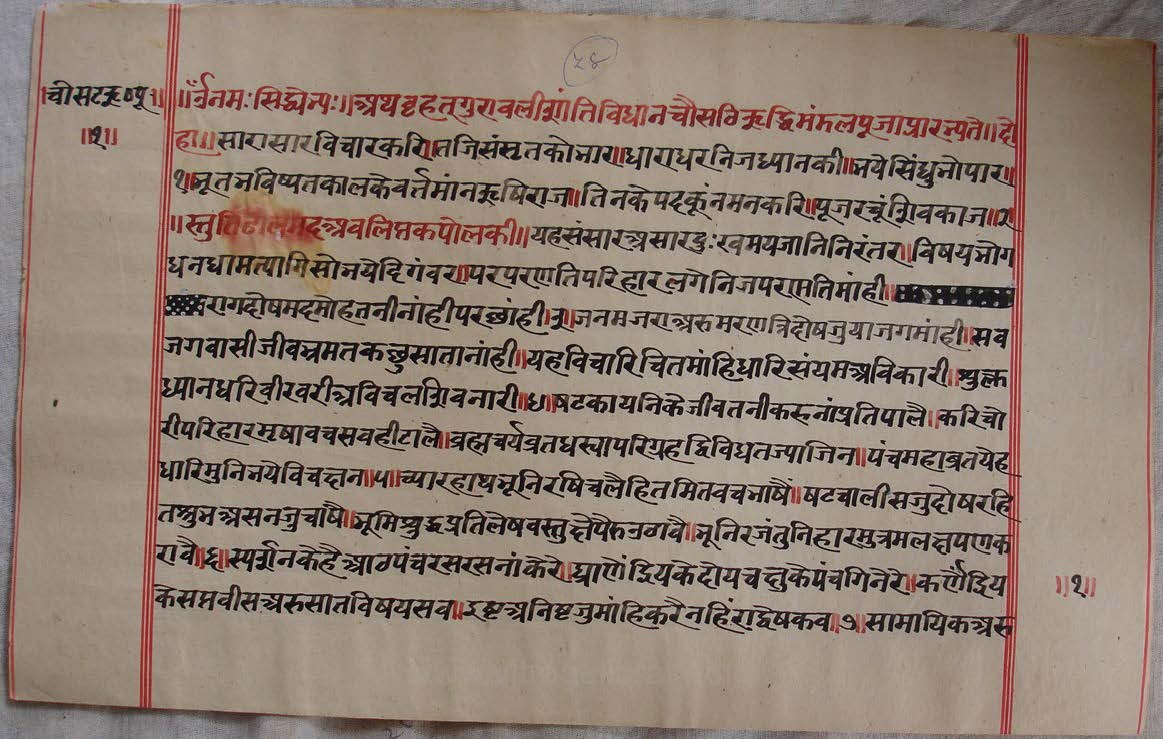 ५४
चौसटऋ॰पू॰
॥१॥
॥ॐनमःसिद्धेभ्यः॥अथबृहत्गुरावलीशांतिविधानचौसठिऋद्धिमंडलपूजाप्रारभ्यते॥दो
हा॥सारासारविचारकरि॥तजिसंसृतकोभार॥धाराधरनिजध्यानकी॥भयेसिंधुभोपार॥
१॥भूतभविष्यतकालकेवर्त्तमांनऋषिराज॥तिनकेपदकूंनमनकरि॥पूजरचूंशिवकाज॥२
॥स्तुतिढालमदअवलिप्तकपोलकी॥यहसंसारअसारदुःखमयजानिनिरंतर॥विषयभोग
धनधामत्यागिसोभयेदिगंबर॥परपरणतिपरिहारलगेनिजपरणतिमांही॥
रागदोषमदमोहतनीनांहीपरछांही॥३॥जनमजराअरुमरणत्रिदोषजुयाजगमांही॥सव
जगवासीजीवभ्रमतकछुसातानांही॥यहविचारिचितमांहिंधारिसंयमअविकारी॥शुक्ल
ध्यानधरिवीरवरीअविचलशिवनारी॥४॥षटकायनिकेजीवतनीकरुनांप्रतिपालै॥करिचो
रीपरिहारमृषावचसवहीटालै॥ब्रह्मचर्यव्रतधस्यापरिग्रहद्विविधतज्याजिन॥पंचमहाव्रतयेह
धारिमुनिभयेविचछन॥५॥च्यारहाथभूनिरषिचलैहितमितवचभाषैं॥षटचालीसजुदोषरहि
तशुभअसनजुचाषै॥भूमिशुद्धप्रतिलेषवस्तु
रावै॥६॥स्पर्शनकेहैआठपंचरसरसनांकेरे॥घ्राणेंद्रियकेदोयचक्षुकेपंचगिनेरे॥कर्णेंद्रिय ॥१॥
केसप्तवीसअरुसातविषयसव॥इष्टअनिष्टजुमांहिकरैनहिंरागद्वेषकव॥७॥सामायिकअरु